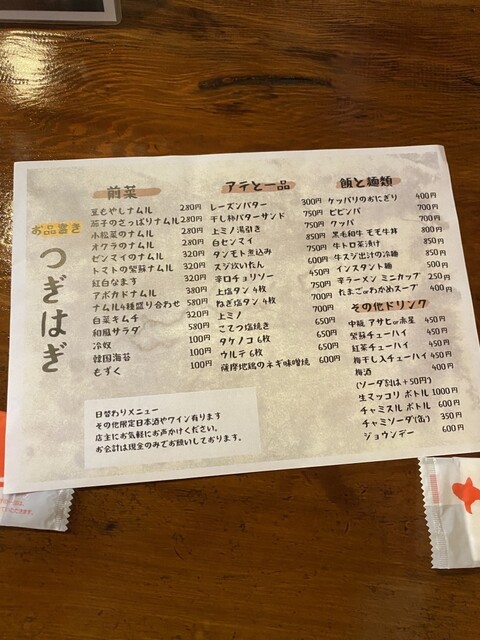 お品書き
つぎはぎ
前菜
豆もやしナムル 280円
茄子のさっぱりナムル 280円
小松菜のナムル 280円
オクラのナムル 280円
ゼンマイのナムル 320円
トマトの紫蘇ナムル 320円
紅白なます 320円
アボカドナムル 380円
ナムル4種盛り合わせ 580円
白菜キムチ 320円
和風サラダ 580円
冷奴 100円
韓国海苔 100円
もずく 100円
アテと一品
レーズンバター 300円
干し柿バターサンド 750円
上ミノ湯引き 750円
白センマイ 850円
タンモト煮込み 750円
スジ炊いたん 600円
辛口チョリソー 450円
上塩タン 4枚 750円
ねぎ塩タン 4枚 700円
上ミノ
こてつ塩焼き 650円
タケノコ 6枚 650円
ウルテ 6枚 650円
薩摩地鶏のネギ味噌焼 600円
飯と麺類
ケッパリのおにぎり 400円
ビビンバ 700円
クッパ 700円
黒毛和牛 モモ牛丼 800円
牛トロ茶漬け 850円
牛スジ出汁の冷麺 850円
インスタント麺 500円
辛ラーメン ミニカップ 250円
たまごorわかめスープ 400円
その他ドリンク
中瓶 アサヒor赤星 450円
紫蘇チューハイ 450円
紅茶チューハイ 450円
梅干し入チューハイ 450円
梅酒 400円
(ソーダ割は+50円)
生マッコリ ボトル 1000円
チャミスル ボトル 600円
チャミソーダ(缶) 350円
ジョウンデー 600円
日替わりメニュー
その他限定日本酒やワイン有ります
店主にお気軽にお声かけください。
お会計は現金のみでお願いしております。